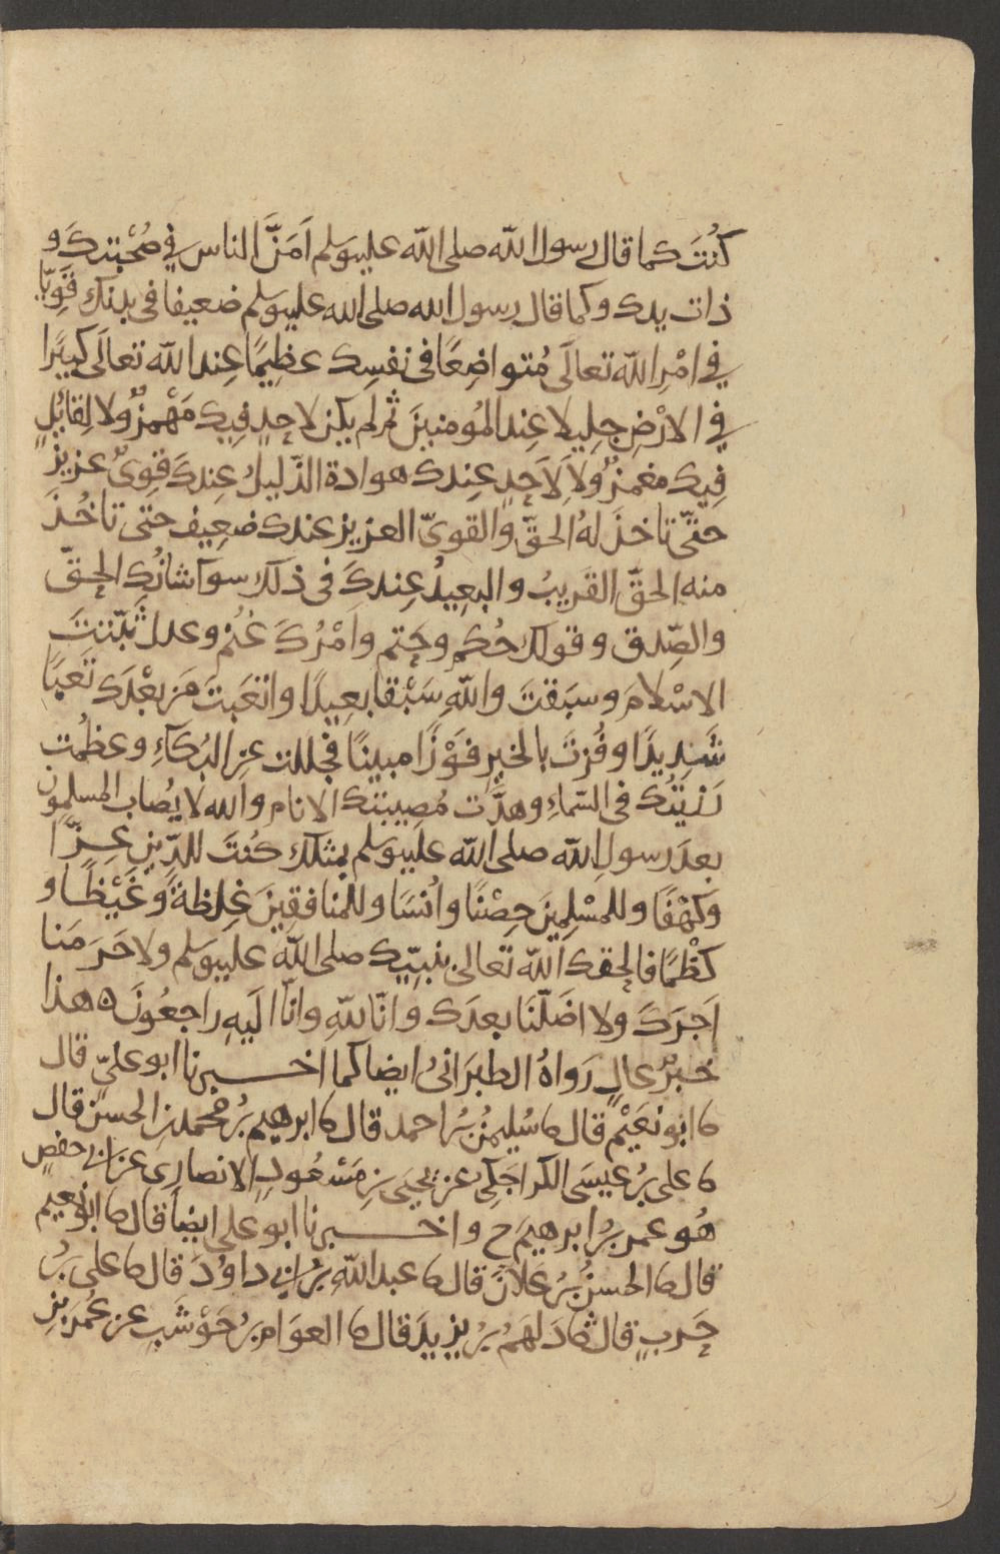 كُنتَ كما قال رسول الله صلى الله عليه وسلم اَمَنَّ الناس في صُحْبَتِكَ و
ذات يدك وكما قال رسول الله صلى الله عليه وسلم ضعيفا في بدنك قَوِيّا
في امْرِ الله تعالَى مُتواضِعًا في نفسِك عظِيمًا عِند الله تعالَى كبيًرا
في الارْضِ جلِيلا عِند المُومنينَ ثم لم يكن لاحدٍ فِيك مَهْمزٌ ولا لِقائِلٍ
فِيك مغمزٌ ولاَ لاَحدٍ عِندك هوادة الذّليلُ عِندكَ قوِىٌ عزيز
حتّى تاخذَ لهُ الحقَّ والقوىّ العزيز عندك ضعِيف حتّى تاخُذَ
منه الحقّ القَريبُ والبعِيدُ عِندكَ في ذلك سوآ شانُك الحقّ
والصِّدق وقولك حُكم وحَتم وامْرُكَ غُنْم وعدل ثَبّتتَ
الاسْلامَ وسبَقتَ واللهِ سَبْقا بعِيدًا واتعَبتَ مَن بعْدَك تَعبًا
شَدِيدًا وفُزتَ بالخيرِ فَوْزًا مبينًا فجللت عن البُكآءِ وعظُمت
رَزيّتُك في السّماءِ وهدَّت مُصِيبتك الانام والله لا يُصاب المسلمون
بعدَ رسولِ الله صلى الله عليه وسلم بمثلك كُنتَ للدّينِ عِزًّا
وَكهْفًا وللمسْلِمِينَ حِصْنًا واُنسًا وللمنافقِينَ غِلظةً وغَيْظًا و
كَظْمًا فالحقك الله تعالى بنبيّك صلى الله عليه وسلم ولا حَرَمَنا
اَجرَكَ ولا اضَلّنَا بعدَك وانّا للهِ وانّا اليَهِ راجعُونَ ه هذا
خبرٌ عالٍ رَواهُ الطبرَانىُ ايضا كما اخــبرنا ابو عليّ قال
نا ابو نُعَيْم قال نا سُليمٰنُ بنُ احمد قال نا ابرهيم بنُ محمد بن الحسن قال
نا على بنُ عيسَى الكراجَكِى عن يحيَى بنِ مَسْعُودٍ الانصارِى عن ابي حفصٍ
هُو عمر بنُ ابرهيمَ ح واخــبرنا ابو علي ايضا قال نا ابو نُعيم
قال نا الحسنُ بنُ عَلانَ قال نا عبد اللهِ بنُ ابي داوُدَ قال نا على بنُ
حَربٍ قال نا دَلهَمُ بنُ يزيدَ قال نا العوَام بنُ حَوْشَبٍ عن عُمَر بنِ